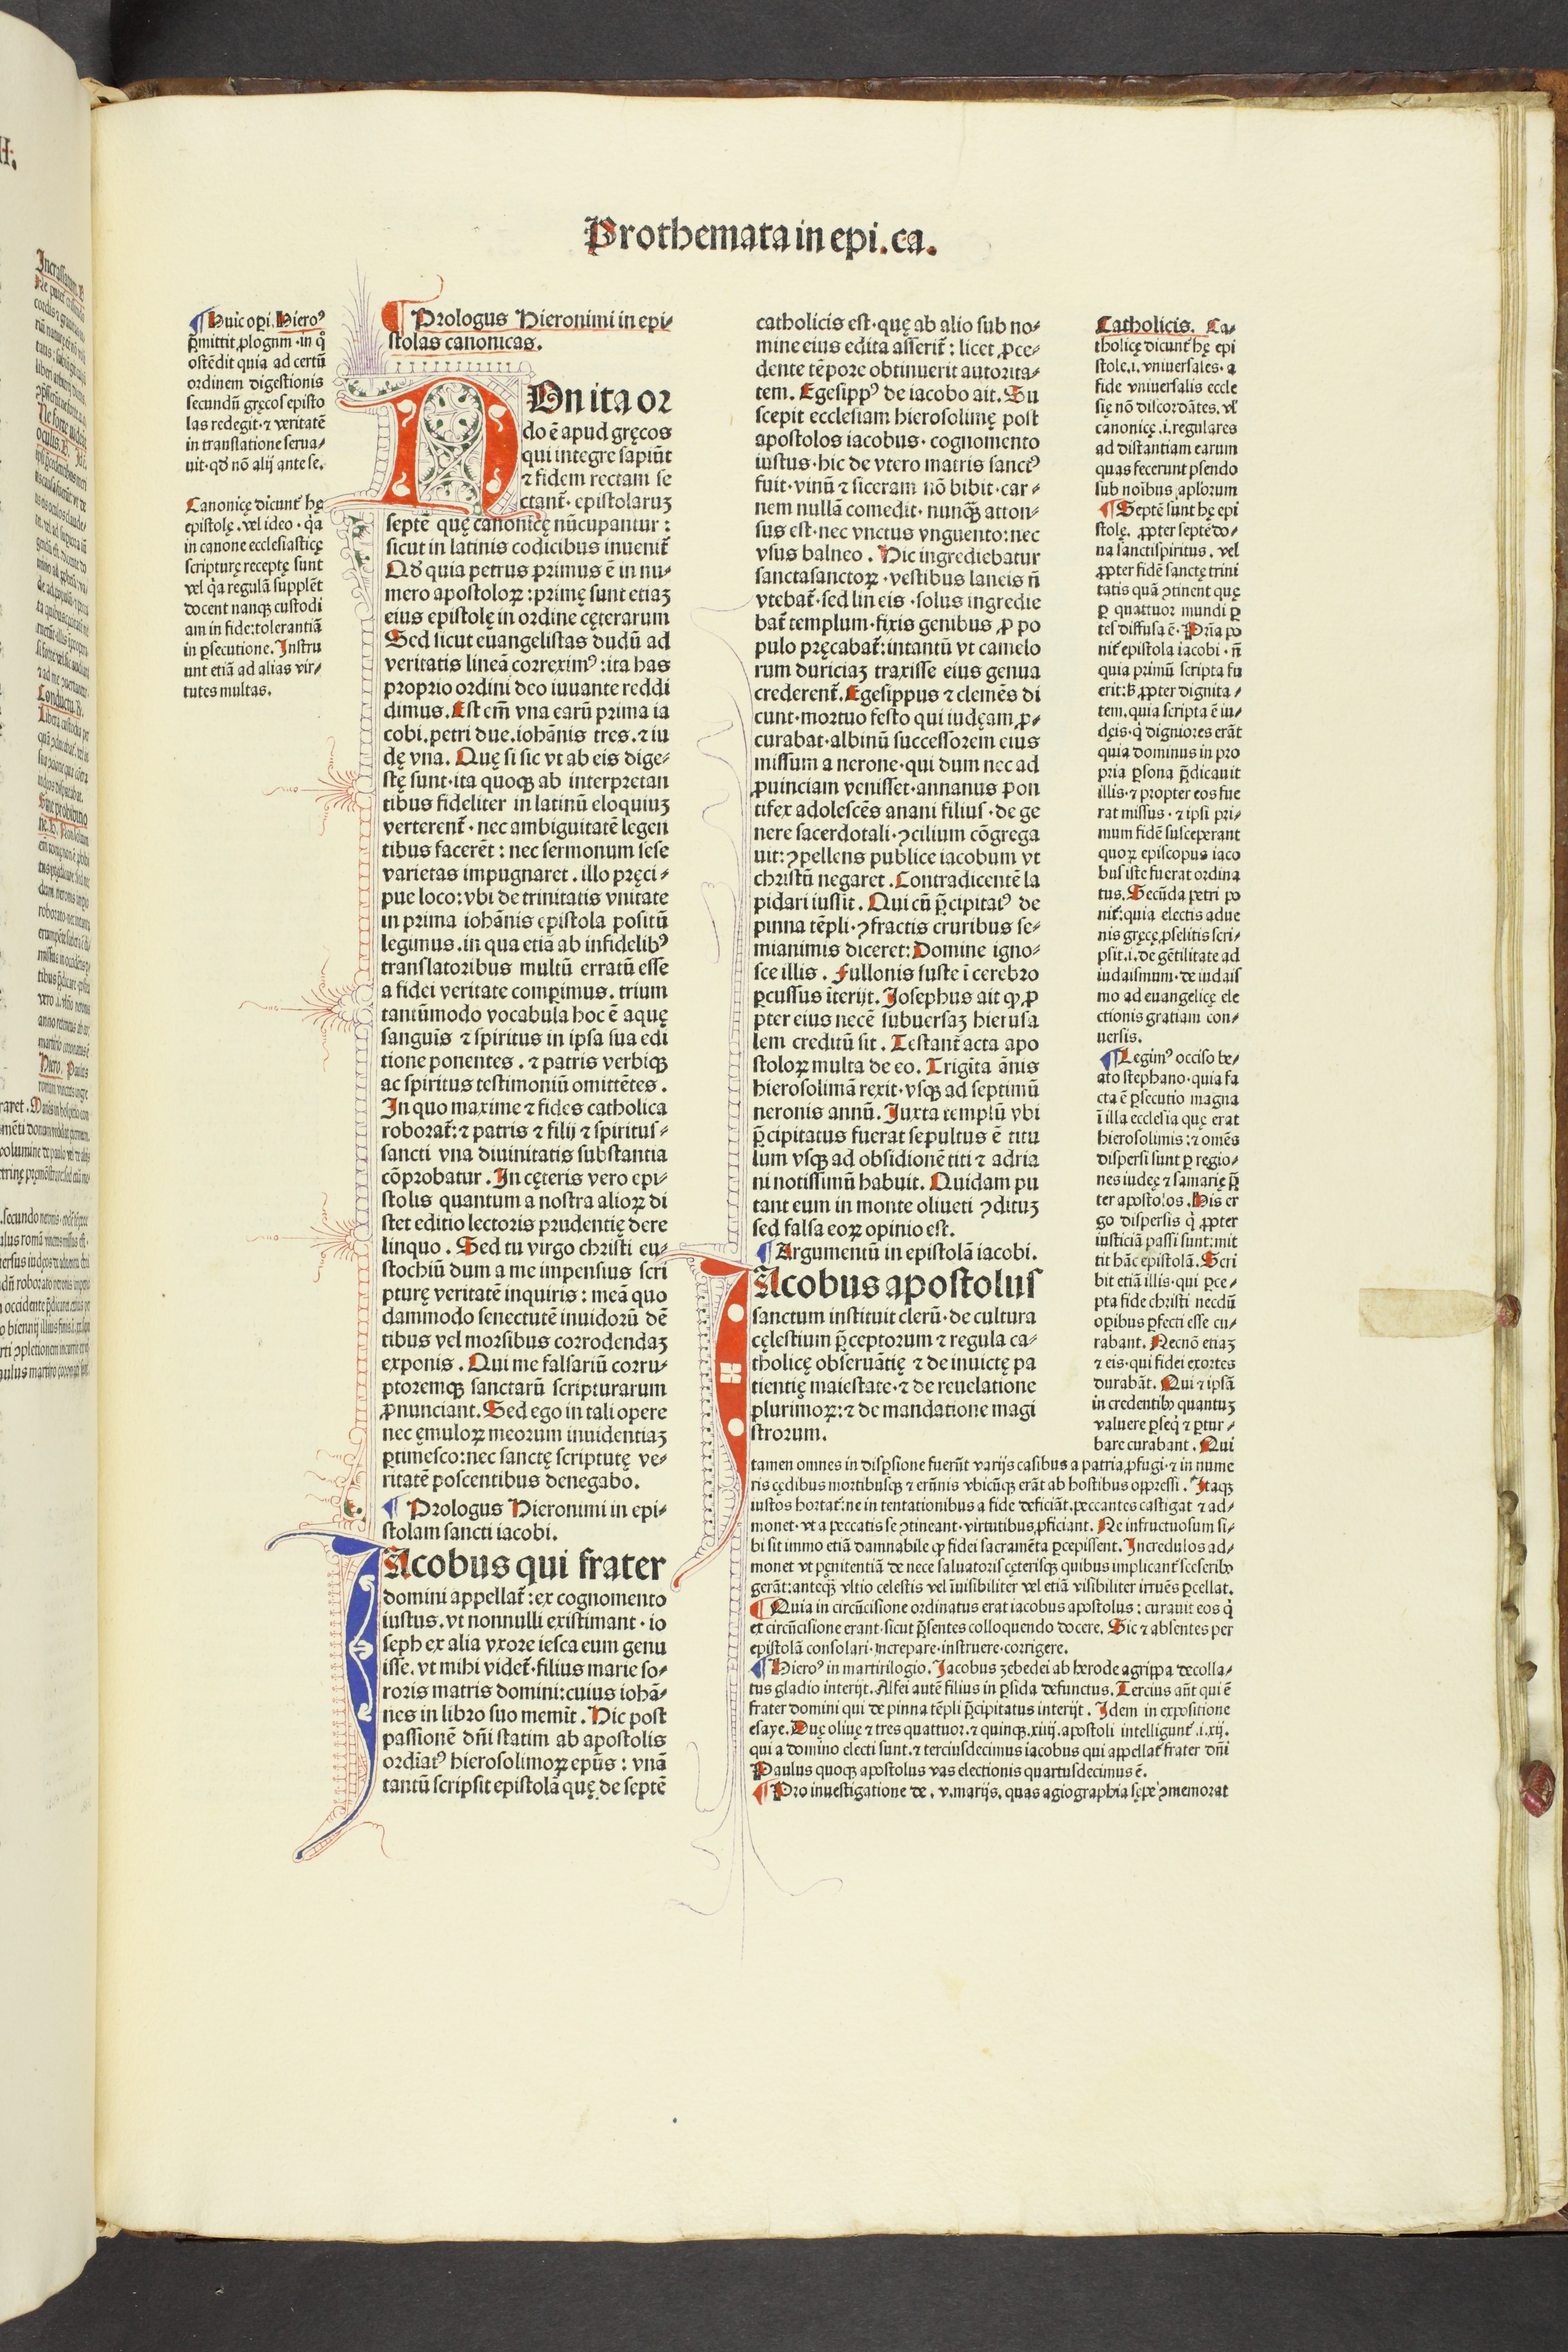 Prothemata in epi.ca.
¶ Huic opi. Hieroꝰ
p̄mittit ꝓlogum · in q̊
ostēdit quia ad certū
ordinem digestionis
secundū gręcos episto
las redegit · ⁊ veritatē
in translatione serua⸗
uit · qd̄ nō alij ante se.
Canonicę dicunt̄ hę
epistolę . vel ideo · q̇a
in canone ecclesiasticę
scripturę receptę sunt
vel q̇a regulā supplēt
docent nanqꝫ custodi
am in fide: tolerantiā
in ꝑsecutione. Instru
unt etiā ad alias vir⸗
tutes multas.
¶ Prologus Hieronimi in epi⸗
stolas canonicas.
NOn ita or
do ē apud gręcos
qui integre sapiūt
⁊ fidem rectam se
ctant̄ · epistolaruꝫ
septē quę canonicę nūcupantur :
sicut in latinis codicibus inuenit̄
Qd̄ quia petrus primus ē in nu⸗
mero apostoloꝝ : primę sunt etiaꝫ
eius epistolę in ordine cęterarum
Sed sicut euangelistas dudū ad
veritatis lineā correximꝰ : ita has
proprio ordini deo iuuante reddi
dimus. Est em̄ vna earū prima ia
cobi. petri due. iohānis tres. ⁊ iu
dę vna. Quę si sic vt ab eis dige⸗
stę sunt · ita quoqꝫ ab interpretan
tibus fideliter in latinū eloquiuꝫ
verterent̄ · nec ambiguitatē legen
tibus facerēt : nec sermonum sese
varietas impugnaret . illo pręci⸗
pue loco: vbi de trinitatis vnitate
in prima iohānis epistola positū
legimus . in qua etiā ab infidelibꝰ
translatoribus multū erratū esse
a fidei veritate comꝑimus . trium
tantūmodo vocabula hoc ē aquę
sanguīs ⁊ spiritus in ipsa sua edi
tione ponentes . ⁊ patris verbiqꝫ
ac spiritus testimoniū omittētes .
In quo maxime ⁊ fides catholica
roborat̄: ⁊ patris ⁊ filij ⁊ spiritus⸗
sancti vna diuinitatis substantia
cōprobatur . In cęteris vero epi⸗
stolis quantum a nostra alioꝝ di
stet editio lectoris prudentię dere
linquo . Sed tu virgo christi eu⸗
stochiū dum a me impensius scri
pturę veritatē inquiris : meā quo
dammodo senectutē inuidorū dē
tibus vel morsibus corrodendaꝫ
exponis . Qui me falsariū corru⸗
ptoremqꝫ sanctarū scripturarum
ꝓnunciant. Sed ego in tali opere
nec ęmuloꝝ meorum inuidentiaꝫ
ꝑtimesco: nec sanctę scriptutę ve⸗
ritatē poscentibus denegabo.
¶ Prologus Hieronimi in epi⸗
stolam sancti iacobi.
IAcobus qui frater
domini appellat̄ : ex cognomento
iustus. vt nonnulli existimant · io
seph ex alia vxore iesca eum genu
isse. vt mihi videt̄ · filius marie so⸗
roris matris domini: cuius iohā⸗
nes in libro suo memīt . Hic post
passionē dn̄i statim ab apostolis
ordiatꝰ hierosolimoꝝ ep̄us : vnā
tantū scripsit epistolā quę de septē
catholicis est · quę ab alio sub no⸗
mine eius edita asserit̄ : licet ꝓce⸗
dente tēpore obtinuerit autorita⸗
tem. Egesippꝰ de iacobo ait. Su
scepit ecclesiam hierosolimę post
apostolos iacobus · cognomento
iustus · hic de vtero matris sanctꝰ
fuit · vinū ⁊ siceram nō bibit · car⸗
nem nullā comedit · nunqꝫ̄ atton⸗
sus est · nec vnctus vnguento: nec
vsus balneo . Hic ingrediebatur
sanctasanctoꝝ · vestibus laneis n̄
vtebat̄ · sed lineis · solus ingredie
bat̄ templum · fixis genibus ꝓ po
pulo pręcabat̄: intantū vt camelo
rum duriciaꝫ traxisse eius genua
crederent̄. Egesippus ⁊ clemēs di
cunt · mortuo festo qui iudęam ꝓ⸗
curabat · albinū successorem eius
missum a nerone · qui dum nec ad
ꝓuinciam venisset · annanus pon
tifex adolescēs anani filius · de ge
nere sacerdotali · ꝯcilium cōgrega
uit: ꝯpellens publice iacobum vt
christū negaret . Contradicentē la
pidari iussit . Qui cū p̄cipitatꝰ de
pinna tēpli · ꝯfractis cruribus se⸗
mianimis diceret: Domine igno⸗
sce illis . Fullonis fuste ī cerebro
ꝑcussus īterijt. Josephus ait ꝙ ꝓ
pter eius necē subuersaꝫ hierusa
lem creditū sit . Testant̄ acta apo
stoloꝝ multa de eo. Trigīta ānis
hierosolimā rexit · vsqꝫ ad septimū
neronis annū. Juxta templū vbi
p̄cipitatus fuerat sepultus ē titu
lum vsqꝫ ad obsidionē titi ⁊ adria
ni notissimū habuit. Quidam pu
tant eum in monte oliueti ꝯdituꝫ
sed falsa eoꝝ opinio est.
¶ Argumentū in epistolā iacobi.
IAcobus apostolus
sanctum instituit clerū · de cultura
cęlestium p̄ceptorum ⁊ regula ca⸗
tholicę obseruātię ⁊ de inuictę pa
tientię maiestate · ⁊ de reuelatione
plurimoꝝ: ⁊ de mandatione magi
strorum.
Catholicis. Ca⸗
tholicę dicunt̄ hę epi
stole .i. vniuersales · a
fide vniuersalis eccle
się nō discordātes. vl̓
canonicę .i. regulares
ad distantiam earum
quas fecerunt pseudo
sub noībus apl̓orum
¶ Septē sunt hę epi
stolę. ꝓpter septē do⸗
na sanctispiritus . vel
ꝓpter fidē sanctę trini
tatis quā ꝯtinent quę
ꝑ quattuor mundi ꝑ
tes diffusa ē · Pri̅a po
nit̄ epistola iacobi · n̄
quia primū scripta fu
erit: ß ꝓpter dignita⸗
tem. quia scripta ē iu⸗
dęis · q̇ digniores erāt
quia dominus in pro
pria ꝑsona p̄dicauit
illis · ⁊ propter eos fue
rat missus · ⁊ ipsi pri⸗
mum fidē susceperant
quoꝝ episcopus iaco
bus iste fuerat ordina
tus. Secūda petri po
nit̄: quia electis adue
nis gręcę ꝓselitis scri⸗
psit .i. de gētilitate ad
iudaismum · de iudais
mo ad euangelicę ele
ctionis gratiam con⸗
uersis.
¶ Legimꝰ occiso be⸗
ato stephano · quia fa
cta ē ꝑsecutio magna
ī illa ecclesia quę erat
hierosolimis : ⁊ omēs
dispersi sunt ꝑ regio⸗
nes iudeę ⁊ samarię p̄
ter apostolos . His er
go dispersis q̇ ꝓpter
iusticiā passi sunt: mit
tit hāc epistolā . Scri
bit etiā illis · qui ꝑce⸗
pta fide christi necdū
oꝑibus ꝑfecti esse cu⸗
rabant. Necnō etiaꝫ
⁊ eis · qui fidei exortes
durabāt. Qui ⁊ ipsā
in credentibꝰ quantuꝫ
valuere ꝑseq̇ ⁊ ꝑtur⸗
bare curabant . Qui
tamen omnes in disꝑsione fuerūt varijs casibus a patria ꝓfugi · ⁊ in nume
ris cędibus mortibusqꝫ ⁊ erūnis vbicūqꝫ erāt ab hostibus oppressi . Itaqꝫ
iustos hortat̄: ne in tentationibus a fide deficiāt. peccantes castigat ⁊ ad⸗
monet · vt a peccatis se ꝯtineant · virtutibus ꝓficiant. Ne infructuosum si⸗
bi sit immo etiā damnabile ꝙ fidei sacramēta ꝑcepissent. Incredulos ad⸗
monet vt penitentiā de nece saluatoris cęterisqꝫ quibus implicant̄ sceleribꝰ
gerāt: anteqꝫ̄ vltio celestis vel īuisibiliter vel etiā visibiliter irruēs ꝑcellat.
¶ Quia in circūcisione ordinatus erat iacobus apostolus : curauit eos q̇
ex circūcisione erant · sicut p̄sentes colloquendo docere. Sic ⁊ absentes per
epistolā consolari · increpare · instruere · corrigere.
¶ Hieroꝰ in martirilogio. Jacobus ꝫebedei ab herode agrippa decolla⸗
tus gladio interijt. Alfei autē filius in ꝑsida defunctus. Tercius aūt qui ē
frater domini qui de pinna tēpli p̄cipitatus interijt . Idem in expositione
esaye. Duę oliuę ⁊ tres quattuor. ⁊ quinqꝫ. xiiij. apostoli intelligunt̄ .i. xij.
qui a domino electi sunt. ⁊ terciusdecimus iacobus qui appellat̄ frater dn̄i
Paulus quoqꝫ apostolus vas electionis quartusdecimus ē.
¶ Pro inuestigatione de . v. marijs, quas agiographia sępe ꝯmemorat